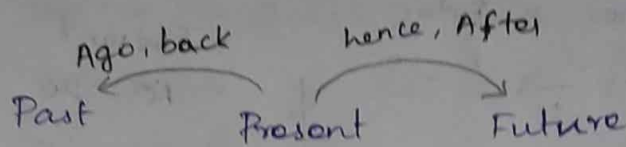 Ago, back hence, After
Past Present Future